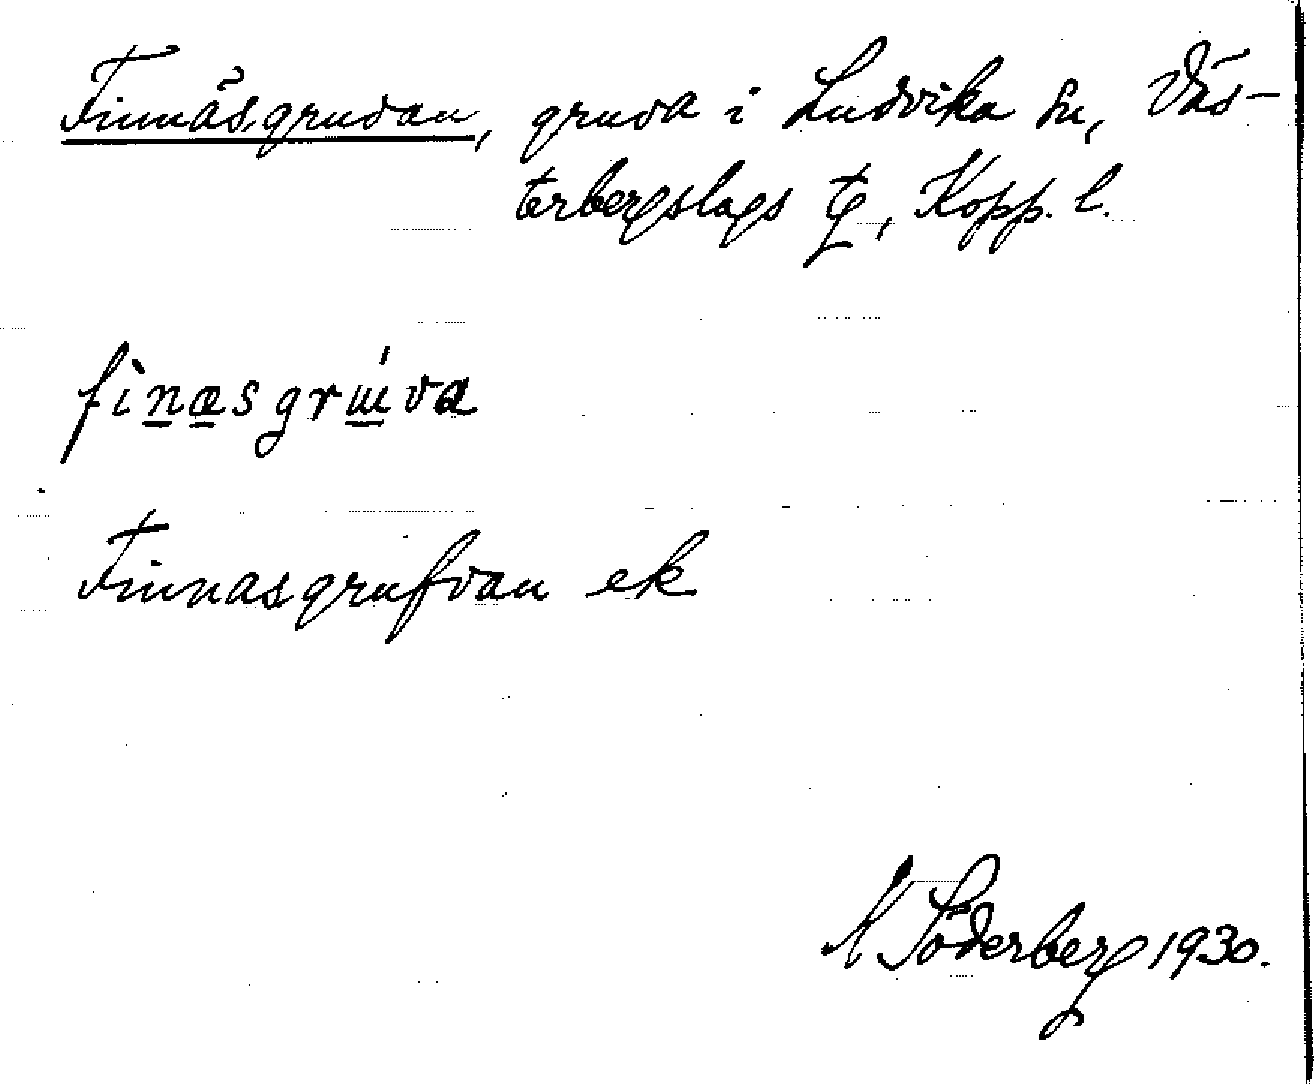 Finnäsgruvan, gruva i Ludvika sn, Väs-
terbergslags tg, Kopp. l.
fìnæsgrɯ́va
Finnasgrufvan ek
Söderberg 1930.